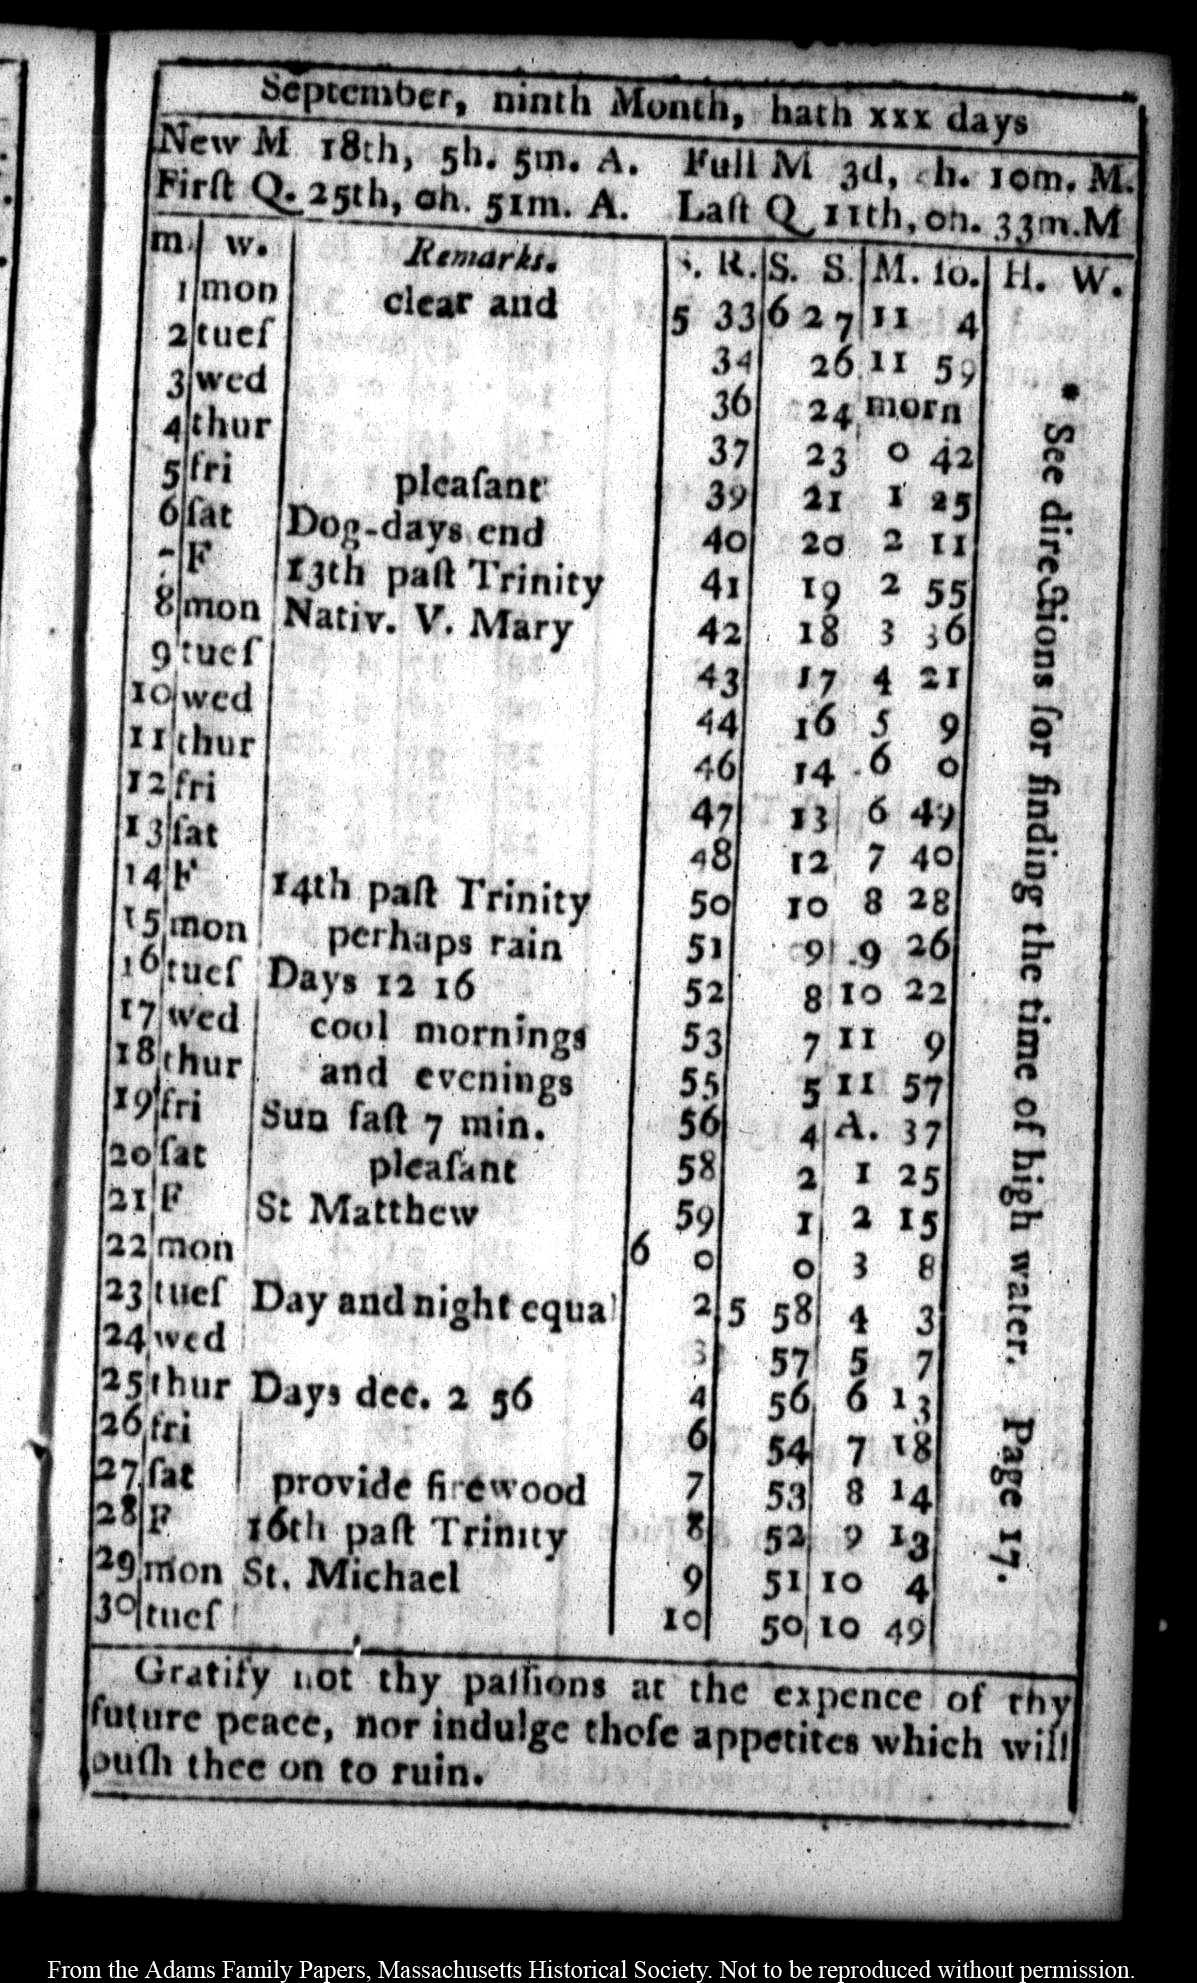 September, ninth Month, hath xxx days
New M 18th, 5h. 5m. A. Full M 3d, h. 10m. M.
Firſt Q. 25th, oh. 51m. A. Laſt Q 11th, oh. 33m. M
m. w. Remarks. S. R. S. S. M. ſo. H. W.
1 mon clear and 5 33 6 27 11 4
2 tueſ 34 26 11 59
3 wed 36 24 morn
4 thur 37 23 0 42
5 fri pleaſant 39 21 1 25
6 ſat Dog-days end 40 20 2 11
7 F 13th paſt Trinity 41 19 2 55
8 mon Nativ. V. Mary 42 18 3 36
9 tueſ 43 17 4 21
10 wed 44 16 5 9
11 thur 46 14 6 0
12 fri 47 13 6 49
13 ſat 48 12 7 40
14 F 14th paſt Trinity 50 10 8 28
15 mon perhaps rain 51 9 9 26
16 tueſ Days 12 16 52 8 10 22
17 wed cool mornings 53 7 11 9
18 thur and evenings 55 5 11 57
19 fri Sun faſt 7 min. 56 4 A. 37
20 ſat pleaſant 58 2 1 25
21 F St Matthew 59 1 2 15
22 mon 6 0 0 3 8
23 tueſ Day and night equal 2 5 58 4 3
24 wed 3 57 5 7
25 thur Days dec. 2 56 4 56 6 13
26 fri 6 54 7 18
27 ſat provide firewood 7 53 8 14
28 F 16th paſt Trinity 8 52 9 13
29 mon St. Michael 9 51 10 4
30 tueſ 10 50 10 49
* See directions for finding the time of high water. Page 17.
Gratify not thy paſſions at the expence of thy
future peace, nor indulge thoſe appetites which will
puſh thee on to ruin.
From the Adams Family Papers, Massachusetts Historical Society. Not to be reproduced without permission.